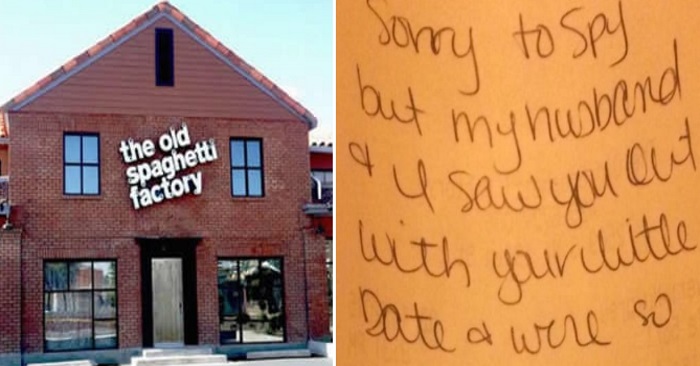 the old
spaghetti
factory
Sorry to spy
but my husband
& I saw you out
with your little
Date & were so